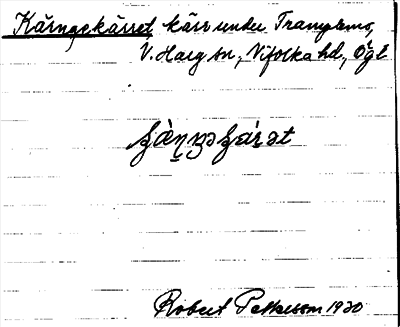 Kärngekärret kärr under Tranglemo,
V. Harg sn, Vifolka hd, Ögl
Robert Pettersson 1930